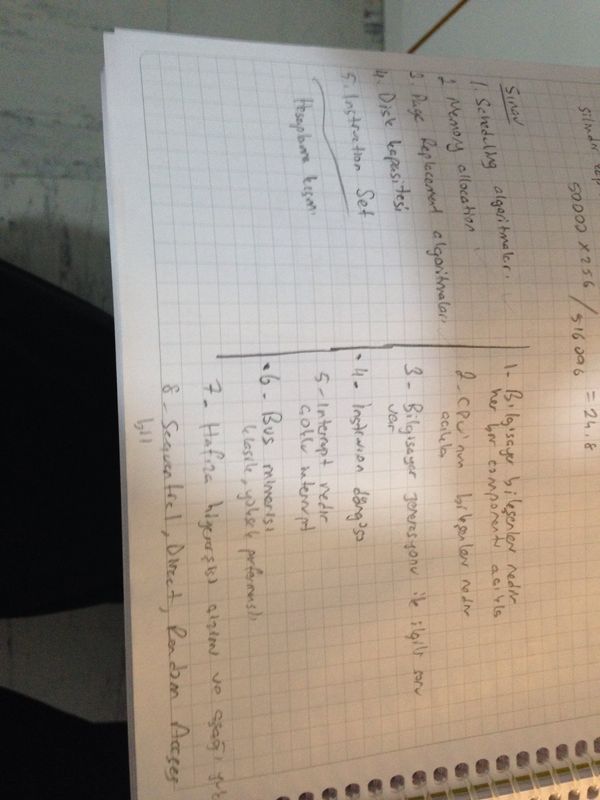 silindir
50000 x 256 / 516096 = 24.8
Sınav
1. Scheduling algoritmaları.
2. Memory allocation
3. Page Replacement algoritmaları
4. Disk kapasitesi
5. Instruction Set
Hesaplama kısmı
1- Bilgisayar bileşenleri nedir
her bir componenti açıkla
2- CPU'nun bileşenleri nedir
açıkla
3- Bilgisayar jenerasyonu ile ilgili soru
var.
4- Instruction döngüsü
5- Interrupt nedir
çoklu interrupt
6- Bus mimarisi
klasik, yüksek performanslı
7- Hafıza hiyerarşisi çizimi ve aşağı
8- Sequential, Direct, Random Access